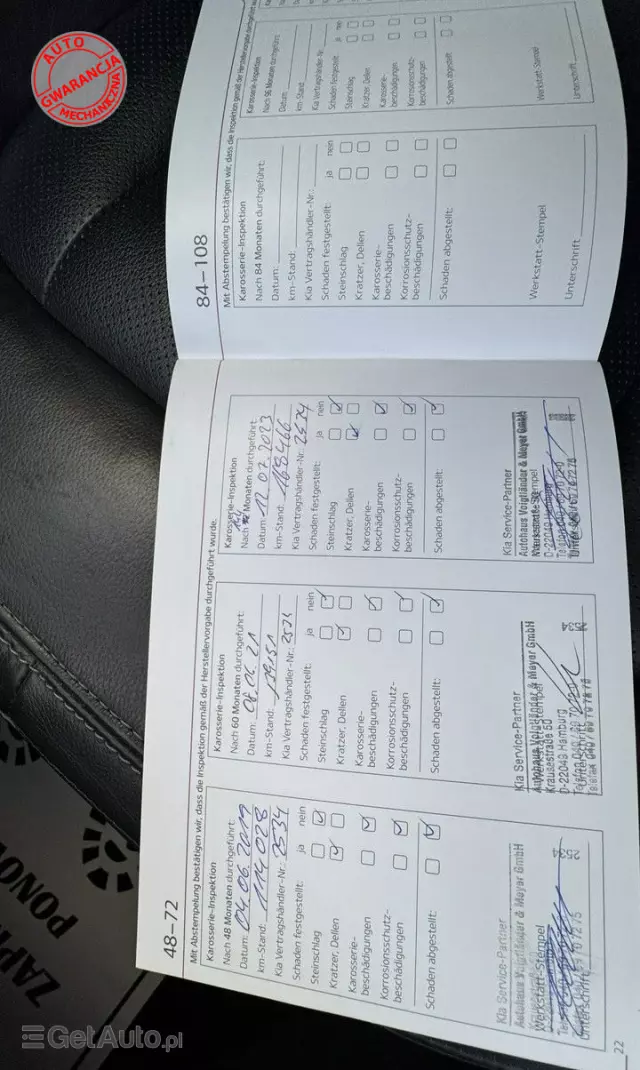 AUTO
GWARANCJA
MECHANICZNA
48–72
Mit Abstempelung bestätigen wir, dass die Inspektion gemäß der Herstellervorgabe durchgeführt wurde.
Karosserie-Inspektion
Nach 48 Monaten durchgeführt:
Datum: 04.06.2019
km-Stand: 114 028
Kia Vertragshändler-Nr.: 2534
Schaden festgestellt: ja nein
Steinschlag
Kratzer, Dellen
Karosserie-
beschädigungen
Korrosionsschutz-
beschädigungen
Schaden abgestellt:
Kia Service-Partner
Autohaus Voigtländer & Meyer GmbH
Werkstatt-Stempel
Unterschrift
Karosserie-Inspektion
Nach 60 Monaten durchgeführt:
Datum:
km-Stand:
Kia Vertragshändler-Nr.: 2534
Schaden festgestellt: ja nein
Steinschlag
Kratzer, Dellen
Karosserie-
beschädigungen
Korrosionsschutz-
beschädigungen
Schaden abgestellt:
Kia Service-Partner
Autohaus Voigtländer & Meyer GmbH
Werkstatt-Stempel
Krausestraße 50
D-22049 Hamburg
Unterschrift
Karosserie-Inspektion
Nach Monaten durchgeführt:
Datum: 12.07.2023
km-Stand: 168466
Kia Vertragshändler-Nr.: 2534
Schaden festgestellt: ja nein
Steinschlag
Kratzer, Dellen
Karosserie-
beschädigungen
Korrosionsschutz-
beschädigungen
Schaden abgestellt:
Kia Service-Partner
Autohaus Voigtländer & Meyer GmbH
D-22049
22
84–108
Mit Abstempelung bestätigen wir, dass die Inspektion gemäß der Herstellervorgabe durchgeführt
Karosserie-Inspektion
Nach 84 Monaten durchgeführt:
Datum:
km-Stand:
Kia Vertragshändler-Nr.:
Schaden festgestellt: ja nein
Steinschlag
Kratzer, Dellen
Karosserie-
beschädigungen
Korrosionsschutz-
beschädigungen
Schaden abgestellt:
Werkstatt-Stempel
Unterschrift
Karosserie-Inspektion
Nach 96 Monaten durchgeführt:
Datum:
km-Stand:
Kia Vertragshändler-Nr.:
Schaden festgestellt: ja nein
Steinschlag
Kratzer, Dellen
Karosserie-
beschädigungen
Korrosionsschutz-
beschädigungen
Schaden abgestellt:
Werkstatt-Stempel
Unterschrift
GetAuto.pl